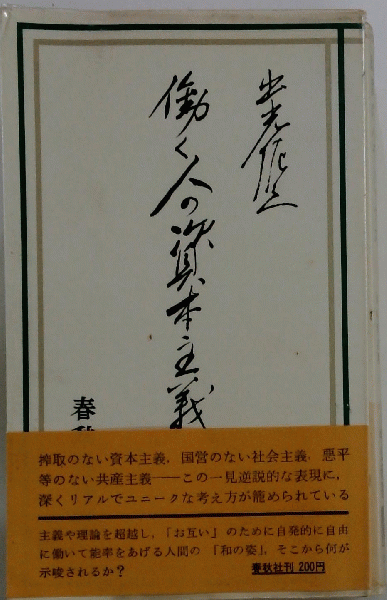 出光佐三
働く人の資本主義
春秋
搾取のない資本主義，国営のない社会主義，悪平
等のない共産主義――この一見逆説的な表現に，
深くリアルでユニークな考え方が籠められている
主義や理論を超越し，「お互い」のために自発的に自由
に働いて能率をあげる人間の「和の姿」，そこから何が
示唆されるか？
春秋社刊 200円